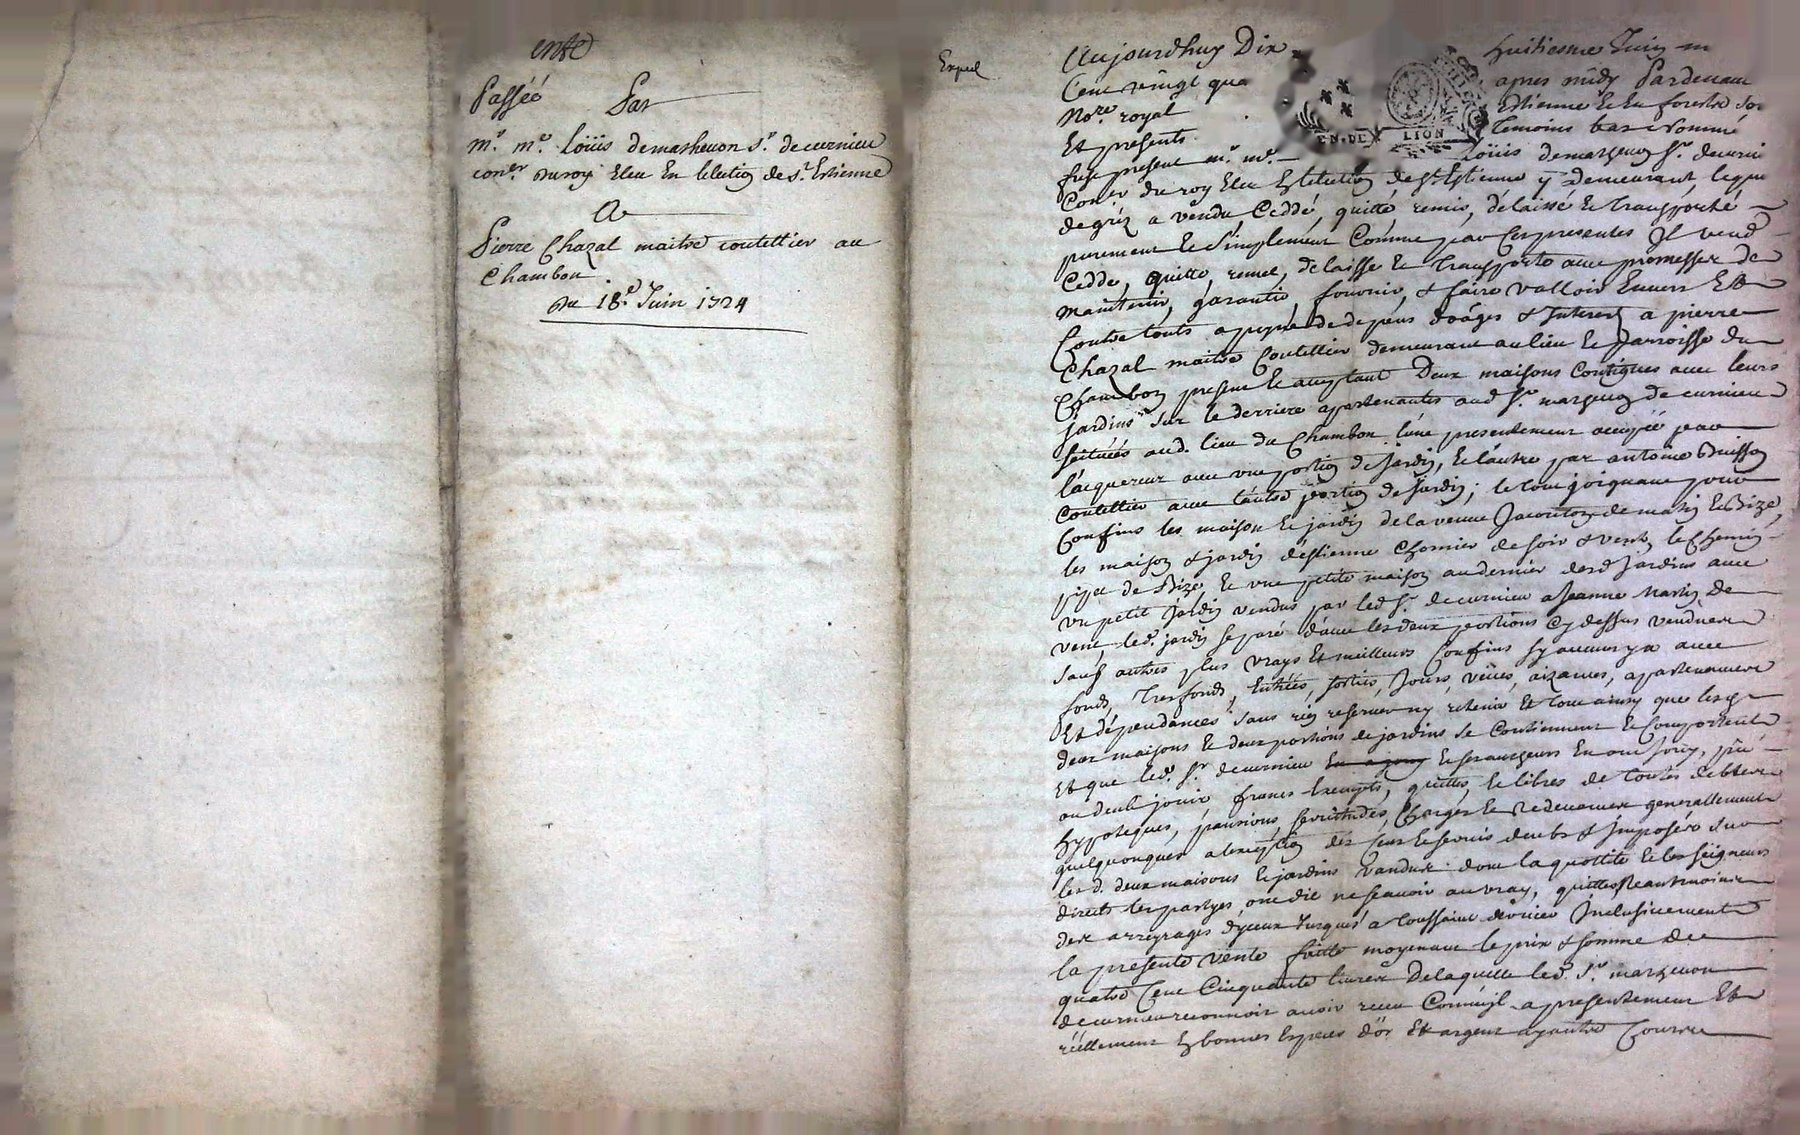 ente
Passéé Par
mr. me. Loüis demasheuon sr. de curnieu
coner. du roy Eleu En lelection de st. Estienne
A
Pierre Chazal maitre coutellier au
Chambon
Du 18e. Juin 1724
Exped
Aujourdhuy Dix huitiesme Juin m
Cent vingt qua apres midy Pardeuant
Nore. royal Estienne & En forestz So
Et presents temoins bas nommé
fust present mr. me. Loüis demazenon sr. decurni
Coner du roy Eleu En Election de St Estienne y demeurant, lequ
de gréz a vendu Ceddé, quitté remis, délaissé & transporté
purement & Simplement Comme par Ces presentes Jl vend
Cedde, quitte, remet, délaisse & transporte auec promesse de
maintenir, garantir, fournir, & faire valloir Enuers Et
Contre touts a peyne de dépens domages & Interest a pierre
Chazal maitre Coutellier demeurant au lieu & parroisse du
Chambon present & aceptant Deux maisons Contigues auec leurs
jardins sur le derriere appartenantes aud sr. mazenon de curnieu
scituéés aud. lieu du Chambon lune presentement occupéé par
lacquereur auec vne portion de jardin, & lautre par antoine Buisson
coutellier auec lautre portion de jardin; le tout joignant pour
Confins les maison & jardin de la veuue Jacouton de matin & Bize,
les maison & jardin destienne Chomier de soir & vent, le Chemin
de Bize & vne petite maison au dernier desd jardins auec
vn petit jardin vendus par led sr. decurnieu a Jeanne Martin de
vent, led. jardin separé dauec les deux portions Cy dessus vendues
sauf autres plus vrays Et meilleurs Confins sy aucuns y a auec
fonds, tresfonds, Entréés, sorties, Jours, veües, aizances, apartenances
Et dépendances sans rien reseruer ny retenir Et tout ainsy que lesd
deux maisons & deux portions de jardins se Contiennent & Comportent
Et que led. sr decurnieu & ses autheurs En ont Jouy, peu
ou deub jouir francs Exempts, quittes, & libres de toutes debtes
hypoteques, pansions, seruitudes, Charges & Redeuances generallement
quelquonques a lexeption des Cens & seruis deubs & Jmposés sur
les d. deux maisons & jardins vandus dont la quottité & les seigneurs
directs les partyes ont dit ne scauoir au vray, quittes Neantmoins
des arreyrages dyceux Jusques a toussaint dernier Jnclusiuement
la presente vente faitte moyenant le prix & somme de
quatre Cent Cinquante liures De laquelle led. sr. mazenon
decurnieu reconnoit auoir receu Comme jl a presentement Et
réellement En bonnes Especes dor Et argent ayant Cours
EN. DE LION